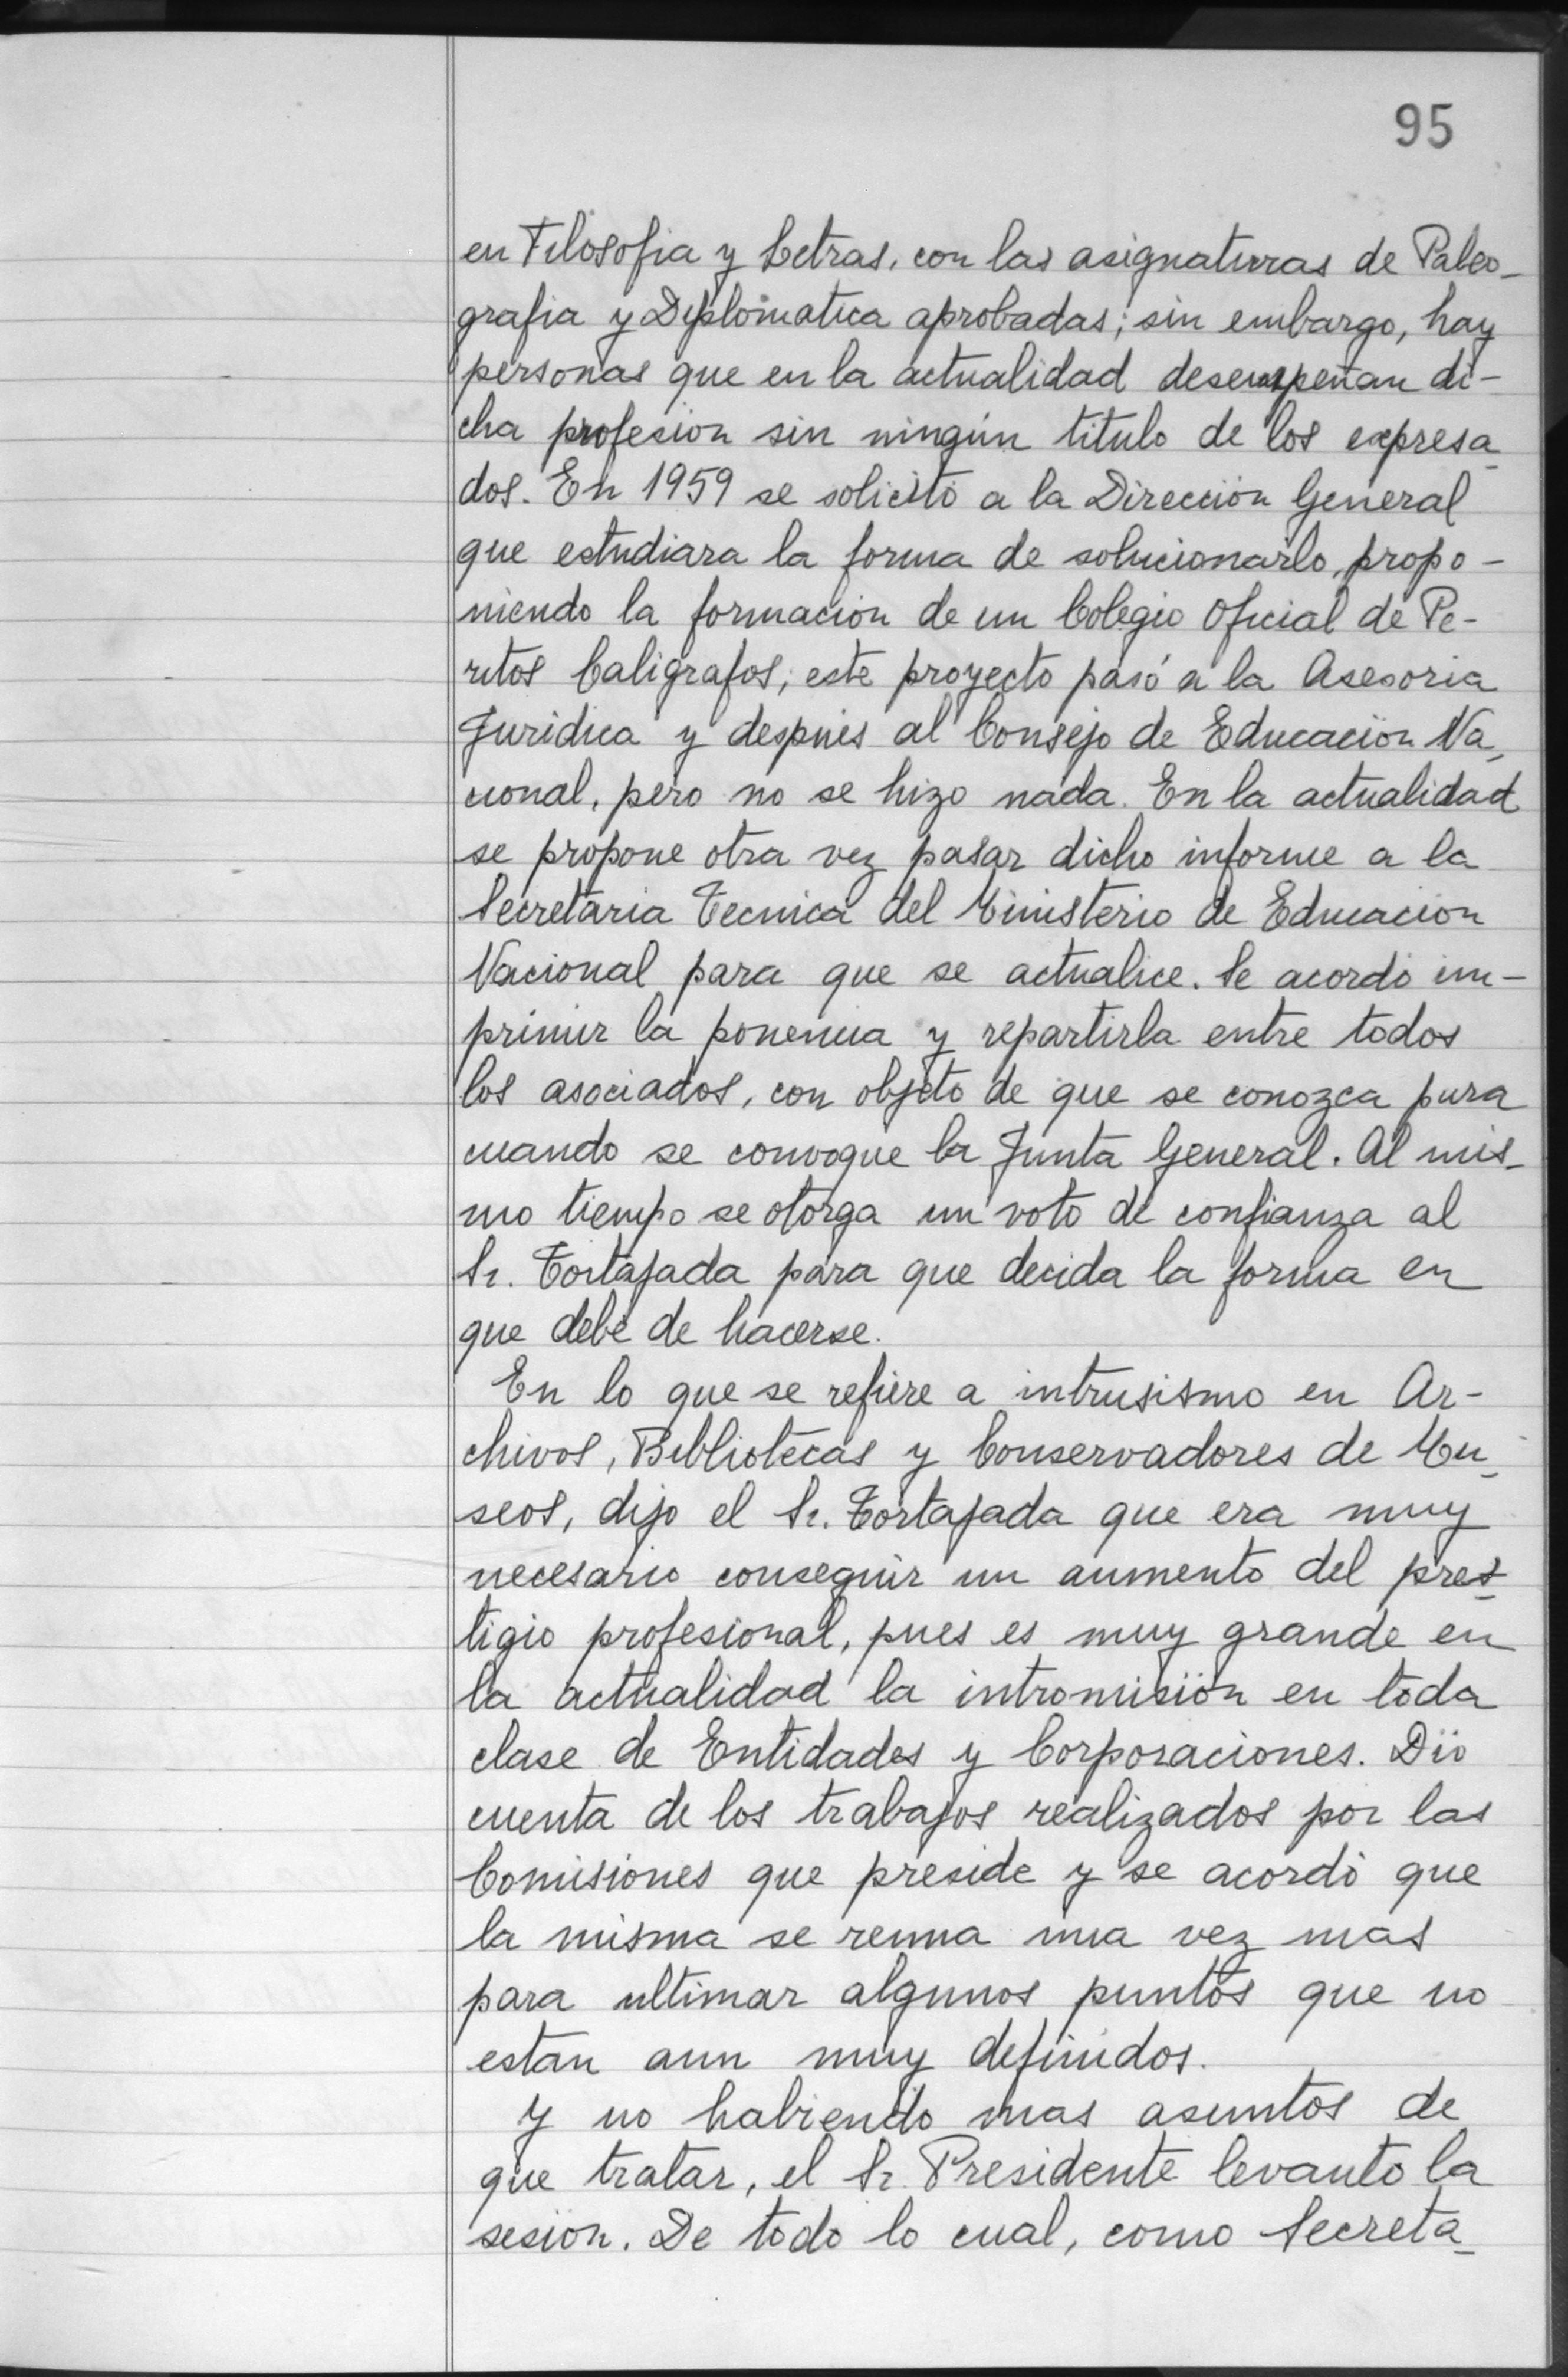 95
en Filosofia y Letras, con las asignaturas de Paleo-
grafia y Diplomatica aprobadas; sin embargo, hay
personas que en la actualidad desempeñan di-
cha profesion sin ningún titulo de los expresa-
dos. En 1959 se solicitó a la Dirección General
que estudiara la forma de solucionarlo, propo-
niendo la formación de un Colegio Oficial de Pe-
ritos Caligrafos; este proyecto pasó a la Asesoria
Juridica y despues al Consejo de Educación Na-
cional, pero no se hizo nada. En la actualidad
se propone otra vez pasar dicho informe a la
Secretaria Tecnica del Ministerio de Educación
Nacional para que se actualice. Se acordó im-
primir la ponencia y repartirla entre todos
los asociados, con objeto de que se conozca para
cuando se convoque la Junta General. Al mis-
mo tiempo se otorga un voto de confianza al
Sr. Tortajada para que decida la forma en
que debe de hacerse.
En lo que se refiere a intrusismo en Ar-
chivos, Bibliotecas y Conservadores de Mu-
seos, dijo el Sr. Tortajada que era muy
necesario conseguir un aumento del pres-
tigio profesional, pues es muy grande en
la actualidad la intromisión en toda
clase de Entidades y Corporaciones. Dió
cuenta de los trabajos realizados por las
Comisiones que preside y se acordó que
la misma se reuna una vez mas
para ultimar algunos puntos que no
estan aun muy definidos.
Y no habiendo mas asuntos de
que tratar, el Sr. Presidente levanto la
sesión. De todo lo cual, como Secreta-